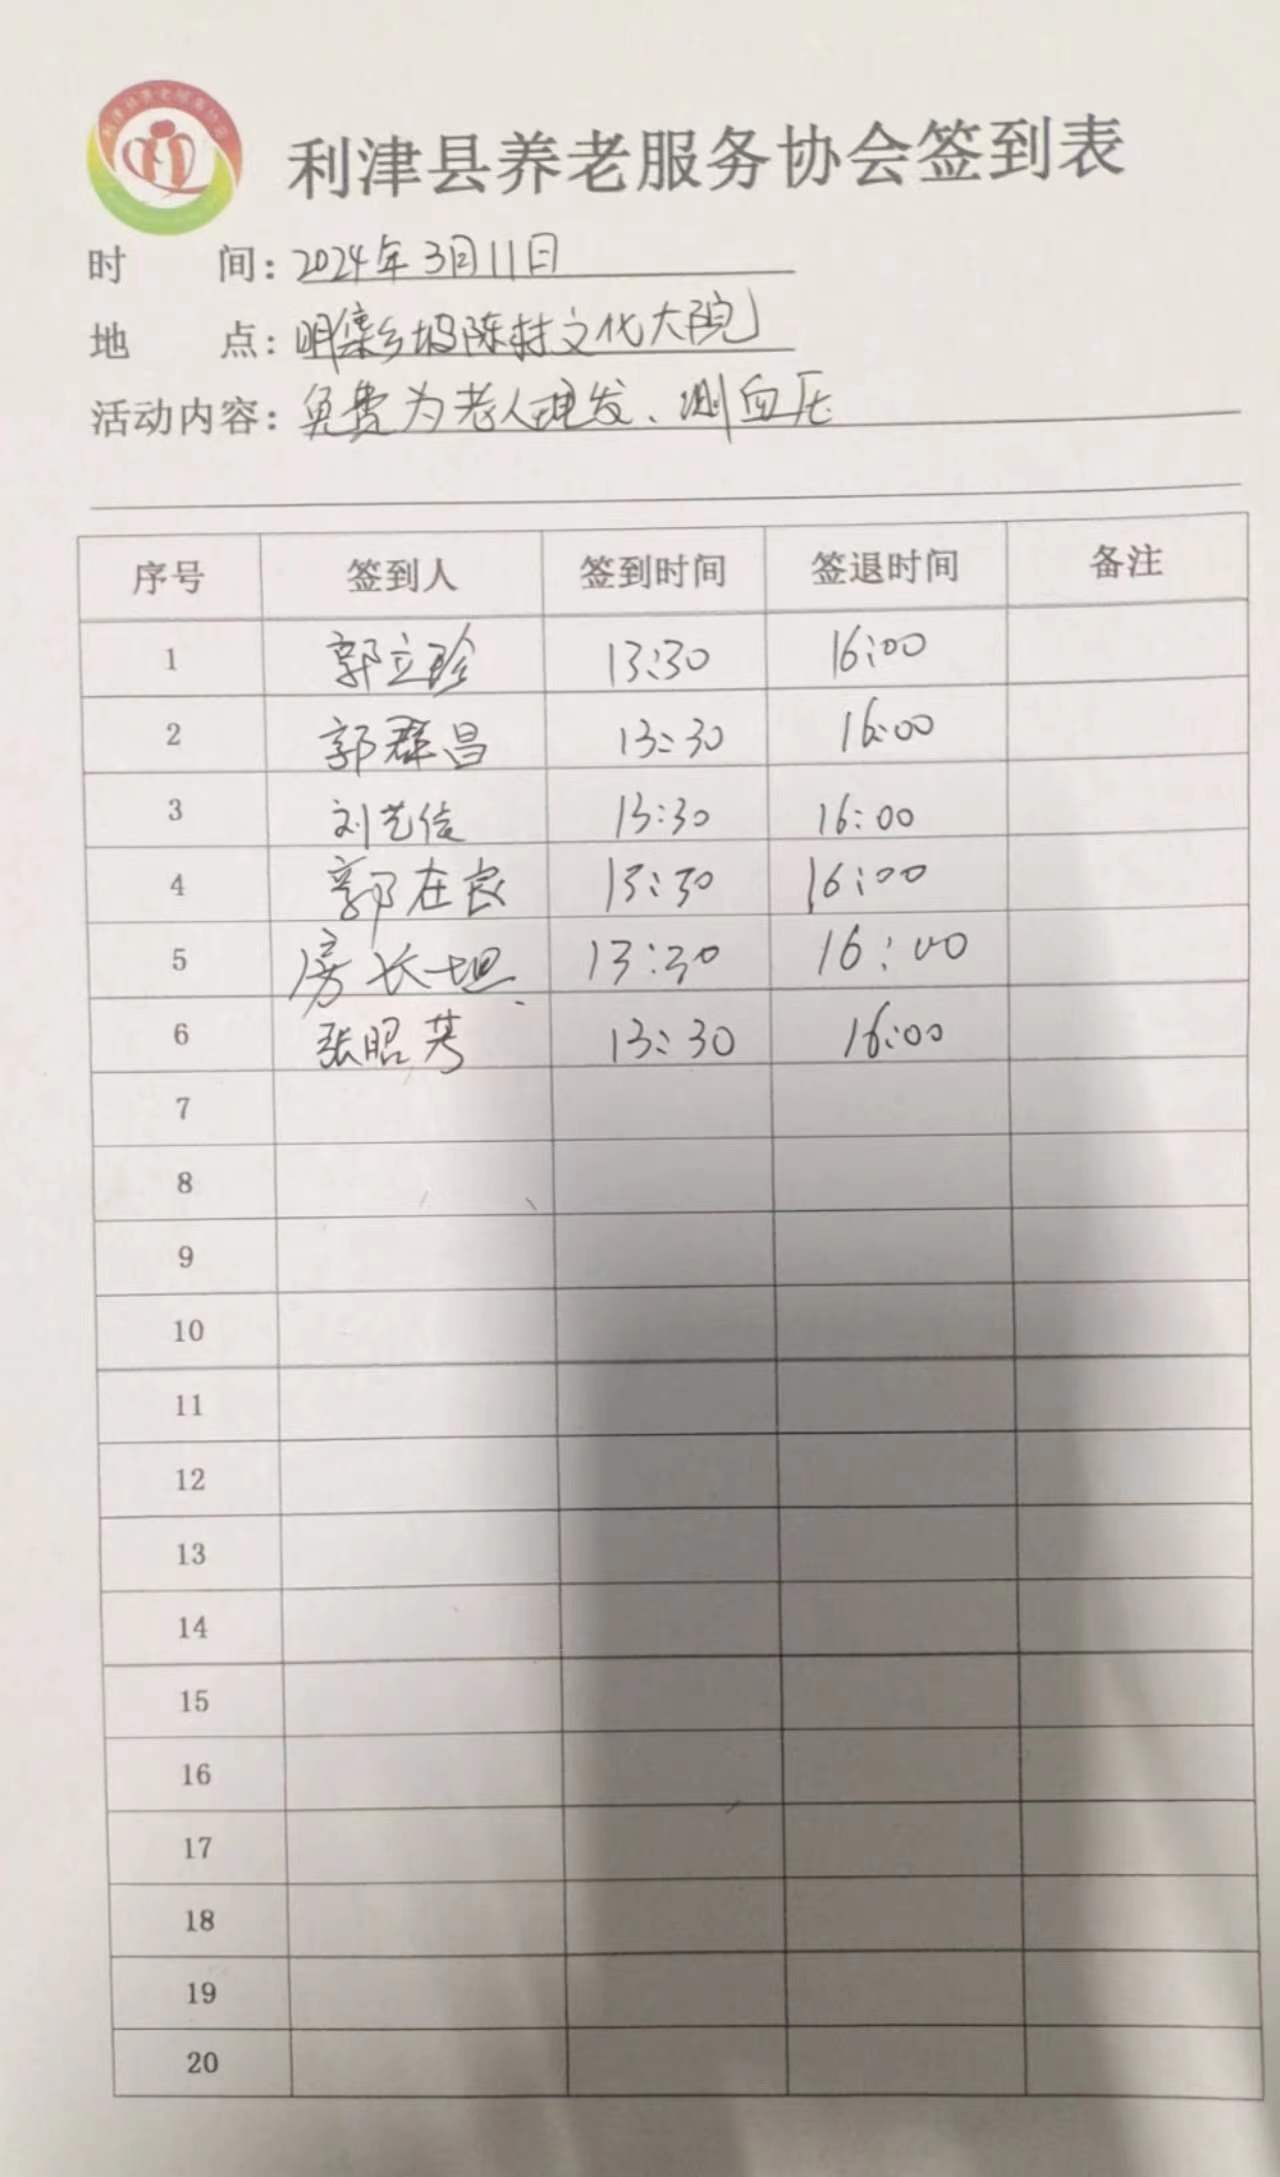 利津县养老服务协会签到表
时 间: 2024年3月11日
地 点: 明集乡坡陈村文化大院
活动内容: 免费为老人理发、测血压
序号 签到人 签到时间 签退时间 备注
1 郭立珍 13:30 16:00
2 郭群昌 13:30 16:00
3 刘艺信 13:30 16:00
4 郭在良 13:30 16:00
5 房长坦 13:30 16:00
6 张昭芳 13:30 16:00
7
8
9
10
11
12
13
14
15
16
17
18
19
20